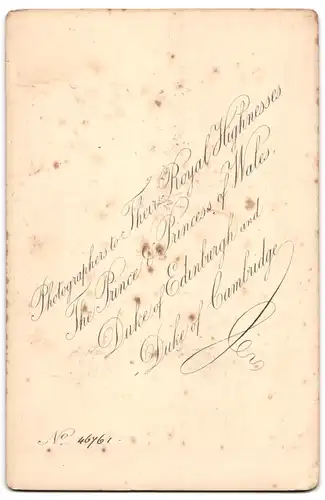 Photographers to Their Royal Highnesses
The Prince & Princess of Wales.
Duke of Edinburgh and
Duke of Cambridge
No 46761.